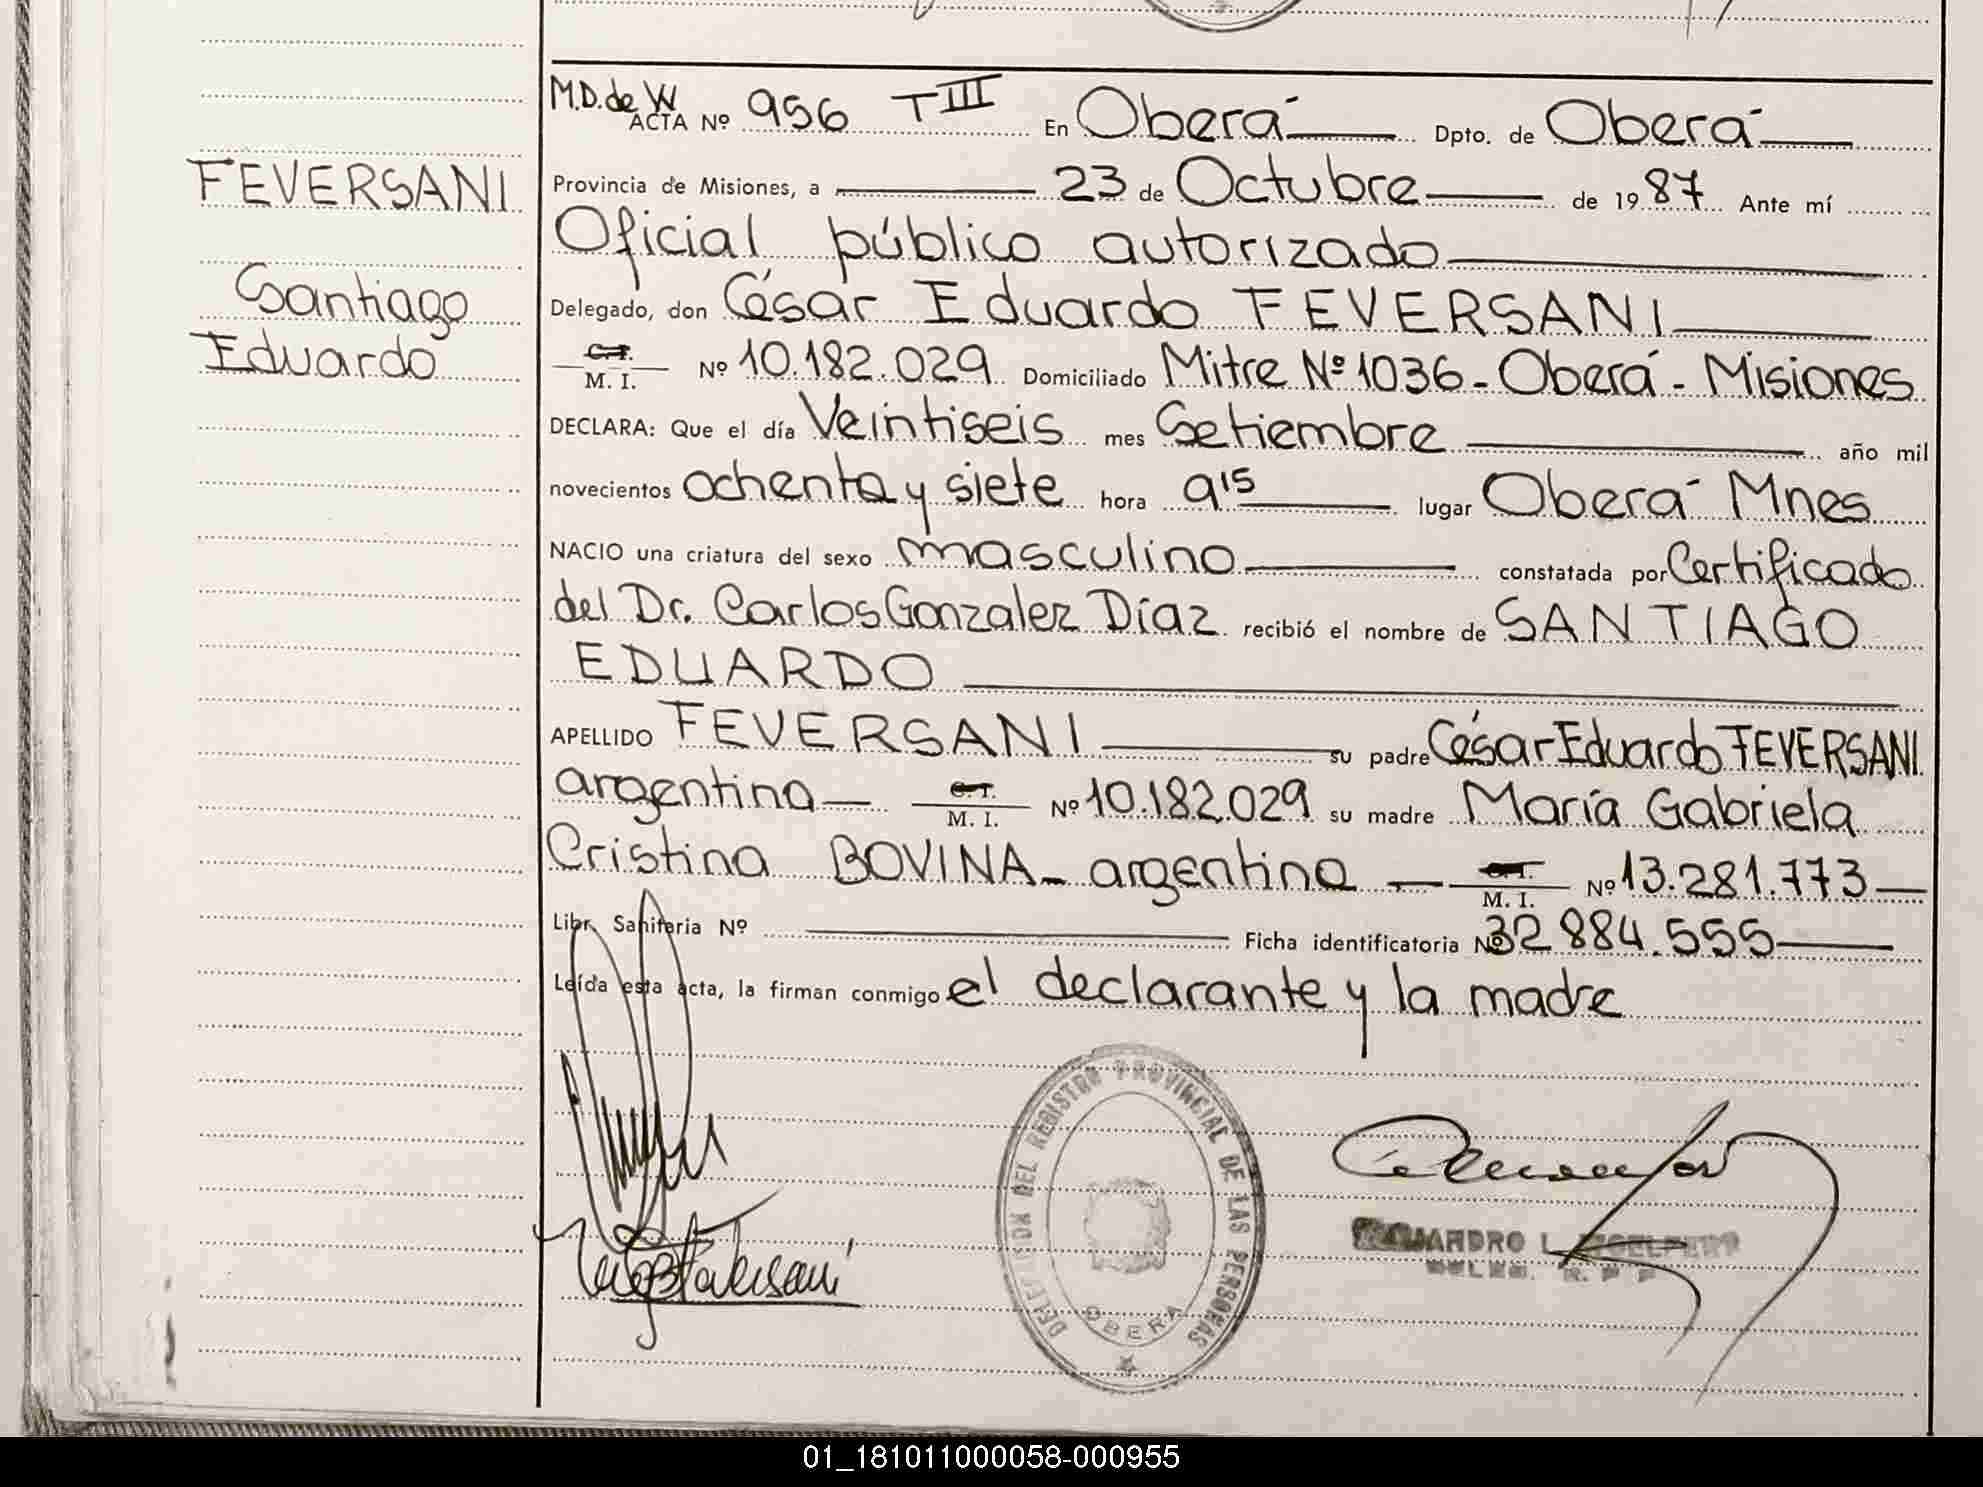 M.D. de W
ACTA Nº 956 TIII En Oberá Dpto. de Oberá
FEVERSANI
Santiago
Eduardo
Provincia de Misiones, a 23 de Octubre de 1987 Ante mí
Oficial público autorizado
Delegado, don César Eduardo FEVERSANI
C.I.
M. I. Nº 10.182.029 Domiciliado Mitre Nº 1036 - Oberá - Misiones
DECLARA: Que el día Veintiseis mes Setiembre año mil
novecientos ochenta y siete hora 9 15 lugar Oberá Mnes
NACIO una criatura del sexo masculino constatada por Certificado
del Dr. Carlos Gonzalez Díaz recibió el nombre de SANTIAGO
EDUARDO
APELLIDO FEVERSANI su padre César Eduardo FEVERSANI
argentino C.I.
M. I. Nº 10.182.029 su madre María Gabriela
Cristina BOVINA - argentina - C.I.
M. I. Nº 13.281.773
Libr. Sanitaria Nº Ficha identificatoria Nº 32 884.555
Leída esta acta, la firman conmigo el declarante y la madre
DELEGACION DEL REGISTRO PROVINCIAL DE LAS PERSONAS
OBERA
01_181011000058-000955